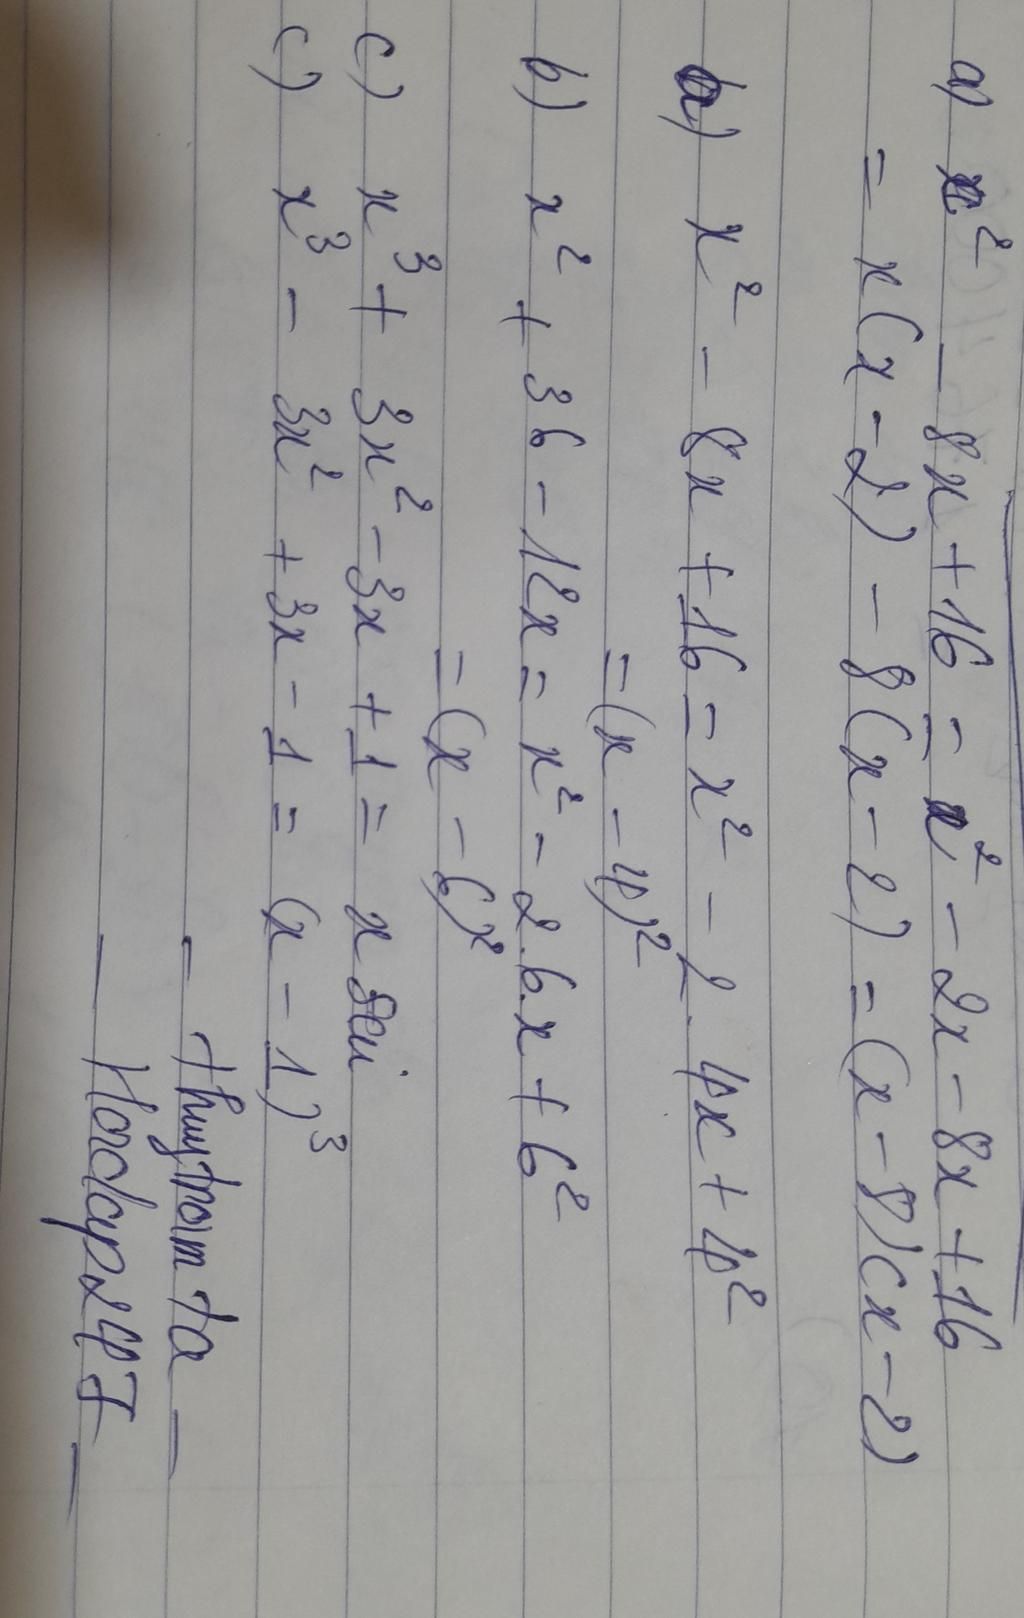 a) x² - 8x + 16 = x² - 2x - 8x + 16
= x(x - 2) - 8(x - 2) = (x - 8)(x - 2)
a) x² - 8x + 16 = x² - 2. 4x + 4²
= (x - 4)²
b) x² + 36 - 12x = x² - 2.6.x + 6²
= (x - 6)²
c) x³ + 3x² - 3x + 1 = x
c) x³ - 3x² + 3x - 1 = (x - 1)³
- thuytram ta -
- Hoidap247 -